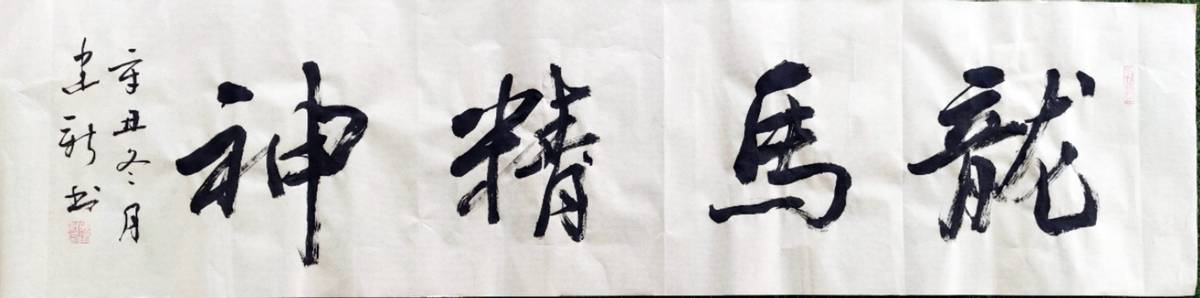 龍馬精神
辛丑冬月
建新书